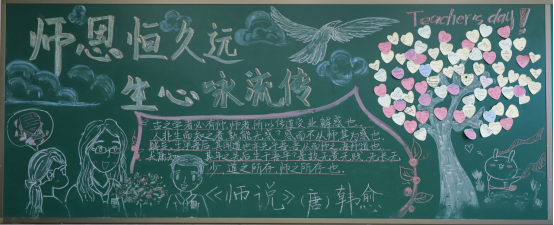 师恩恒久远
生心咏流传
Teacher's day!
古之学者必有师,师者,所以传道受业解惑也。
人非生而知之者,孰能无惑?惑而不从师,其为惑也,
解矣。生乎吾后,其闻道也亦先乎吾,吾从而师之,吾师道也
其年之先后生于吾乎?是故无贵无贱,无长无
少,道之所存,师之所存也。
《师说》(唐)韩愈